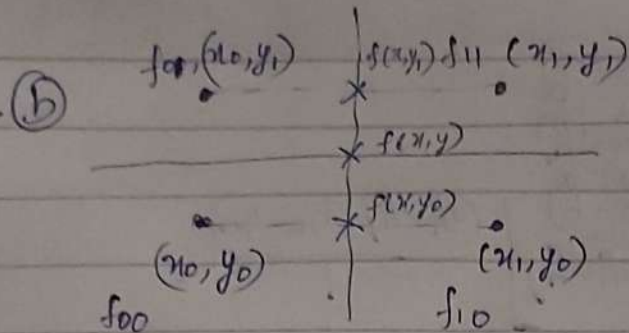 f01, (x0, y1) f(x,y1) f11 (x1, y1)
b
f(x,y)
f(x,y0)
(x0, y0) (x1, y0)
f00 f10